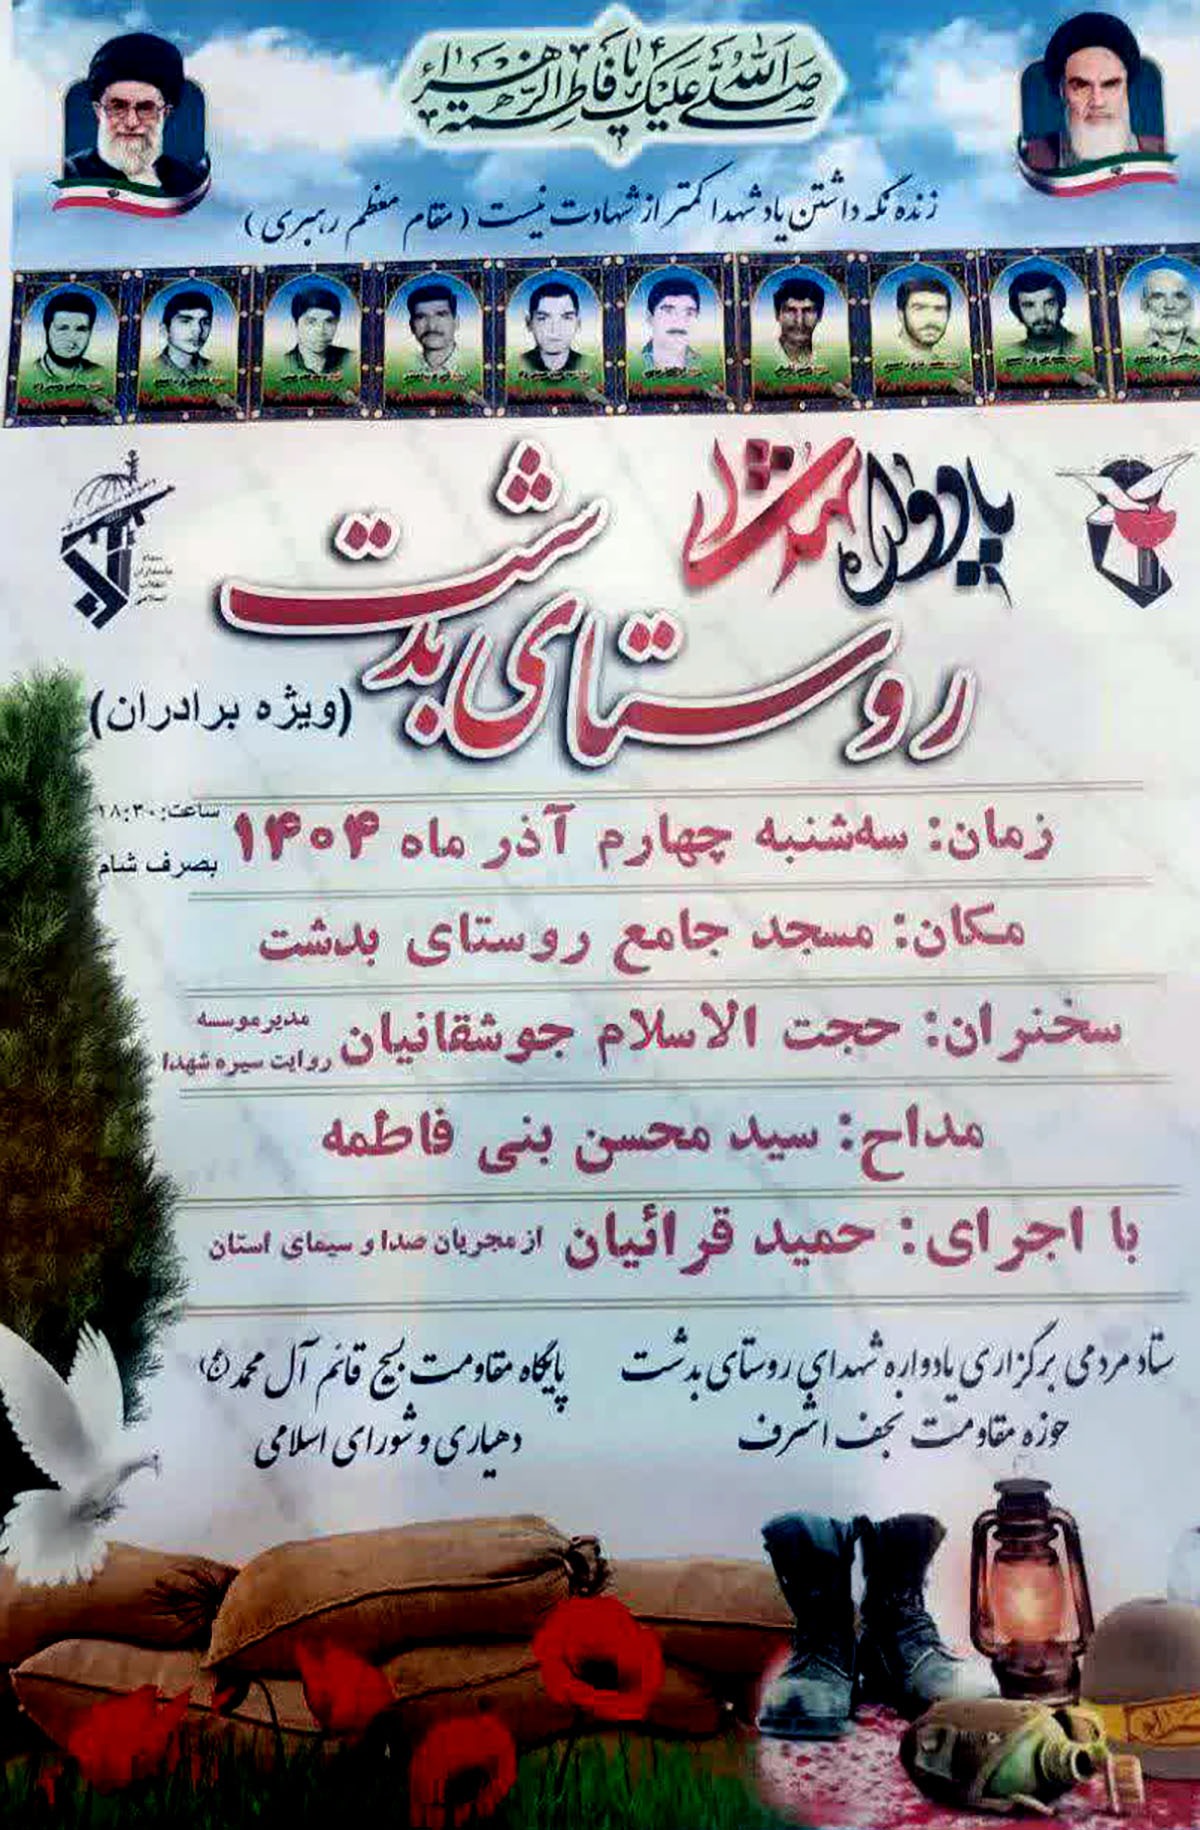 صلی الله علیک یا فاطمة الزهراء
زنده نگه داشتن یاد شهدا کمتر از شهادت نیست (مقام معظم رهبری)
یادواره شهدای
روستای بدشت
(ویژه برادران)
سپاه
پاسداران
انقلاب
اسلامی
زمان: سه‌شنبه چهارم آذر ماه ۱۴۰۴
ساعت: ۱۸:۳۰
بصرف شام
مکان: مسجد جامع روستای بدشت
سخنران: حجت الاسلام جوشقانیان
مدیر موسسه
روایت سیره شهدا
مداح: سید محسن بنی فاطمه
با اجرای: حمید قرائیان از مجریان صدا و سیمای استان
ستاد مردمی برگزاری یادواره شهدای روستای بدشت
حوزه مقاومت نجف اشرف
پایگاه مقاومت بسیج قائم آل محمد (عج)
دهیاری و شورای اسلامی